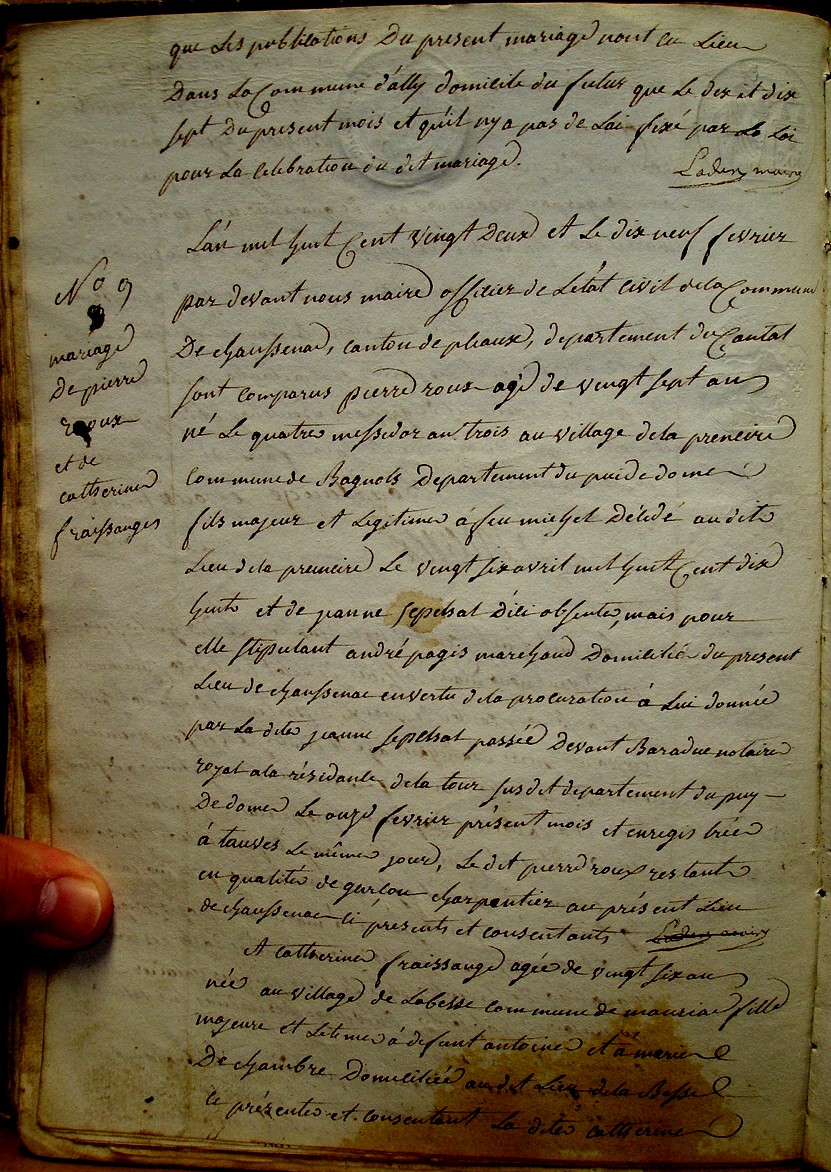 que Les publications Du present mariage n'ont eu Lieu
Dans La Commune d'ally domicile du futur que Le dix et dix
sept Du present mois et qu'il n'y a pas de Lai fixé par La Loi
pour La Celebration du dit mariage. Laden maire
L'an mil huit Cent vingt Deux et Le dix neuf fevrier
par devant nous maire officier de L'etat Civil de la Commune
De chaussenac, canton de pleaux, departement du Cantal
sont comparus pierre roux agé de vingt sept ans
né Le quatre messidor an trois au village de la
commune de Bagnols Departement du pui de dome
fils majeur et Legitime à feu michel Décédé au dit
Lieu de la Le vingt six avril mil huit Cent dix
huit et de jeanne absente, mais pour
elle stipulant andré pagis marchand Domicilié du present
Lieu de chaussenac en vertu de la procuration à Lui donnée
par La dite jeanne passée Devant Baradue notaire
royal a la résidante de la tour susdit departement du puy
De dome Le onze fevrier présent mois et enregistrée
à tauves Le même jour, Le dit pierre roux restant
en qualité de garçon charpentier au présent Lieu
de chaussenac ci présents et consentants Laden maire
Et catherine fraissange agée de vingt six ans
née au village de Labesse commune de mauriac fille
majeure et à defunt antoine et à marie
De chambre Domiciliée au dit Lieu de la Besse
ci présente et consentant La dite catherine
No 9
mariage
De pierre
Roux
et de
catherine
fraissanges